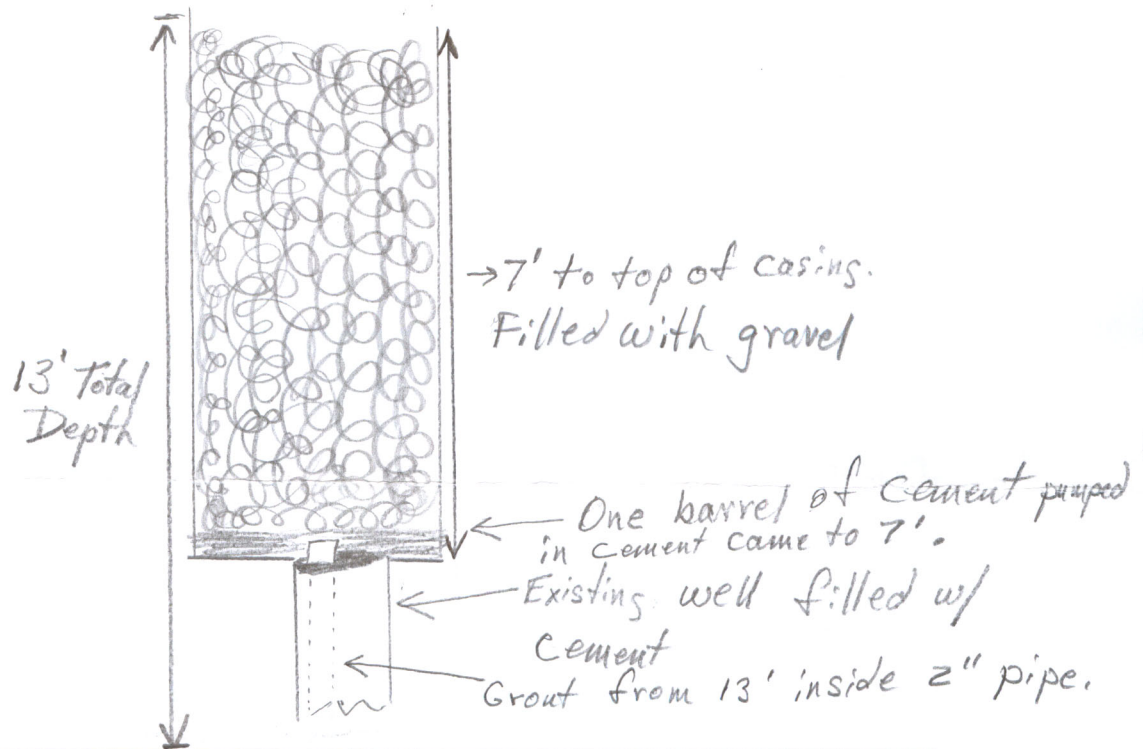 →7' to top of casing.
Filled with gravel
13' Total
Depth
One barrel of cement pumped
in cement came to 7'.
Existing well filled w/
cement
Grout from 13' inside 2" pipe.